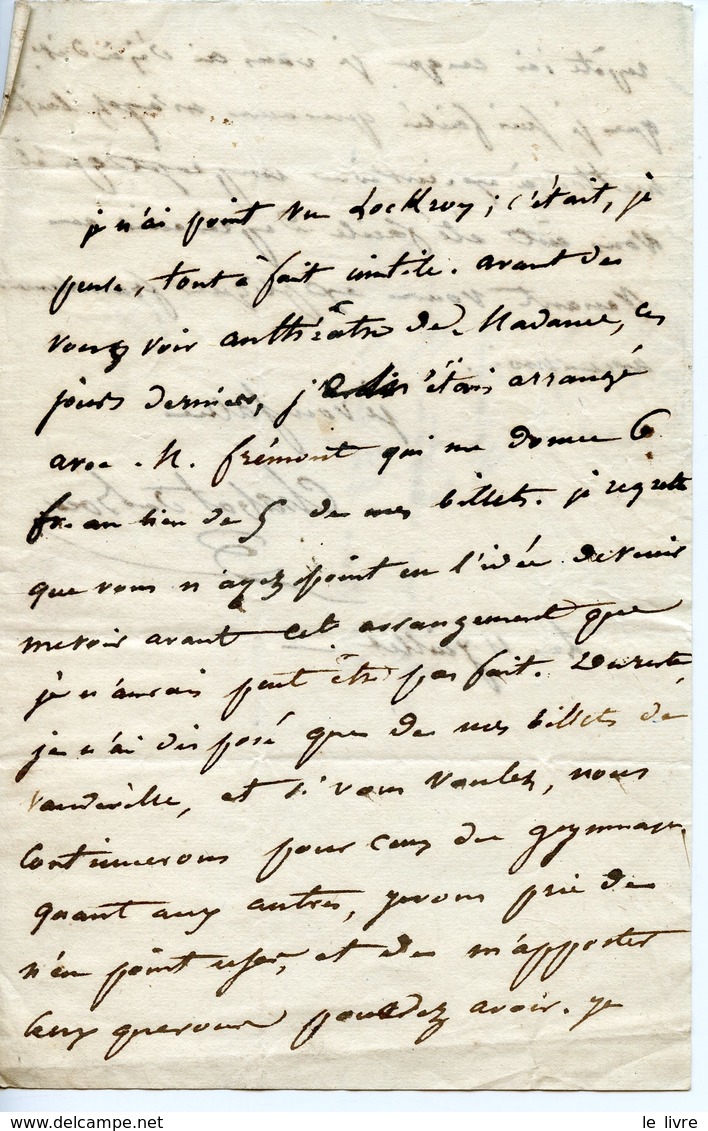 je n'ai point vu Lockroy ; c'était, je
pense, tout à fait inutile. avant de
vous voir au théâtre de Madame, ces
jours derniers, je m'étais arrangé
avec M. frémont qui me donne 6
fr. au lieu de 5 de mes billets. je regrette
que vous n'ayez point eu l'idée de venir
me voir avant cet arrangement que
je n'aurais peut être pas fait. Du reste
je n'ai disposé que de mes billets de
vaudeville, et si vous voulez, nous
continuerons pour ceux du gymnase.
quant aux autres, je vous prie de
n'en point user, et de m'apporter
ceux que vous pouvez avoir. je
le livre